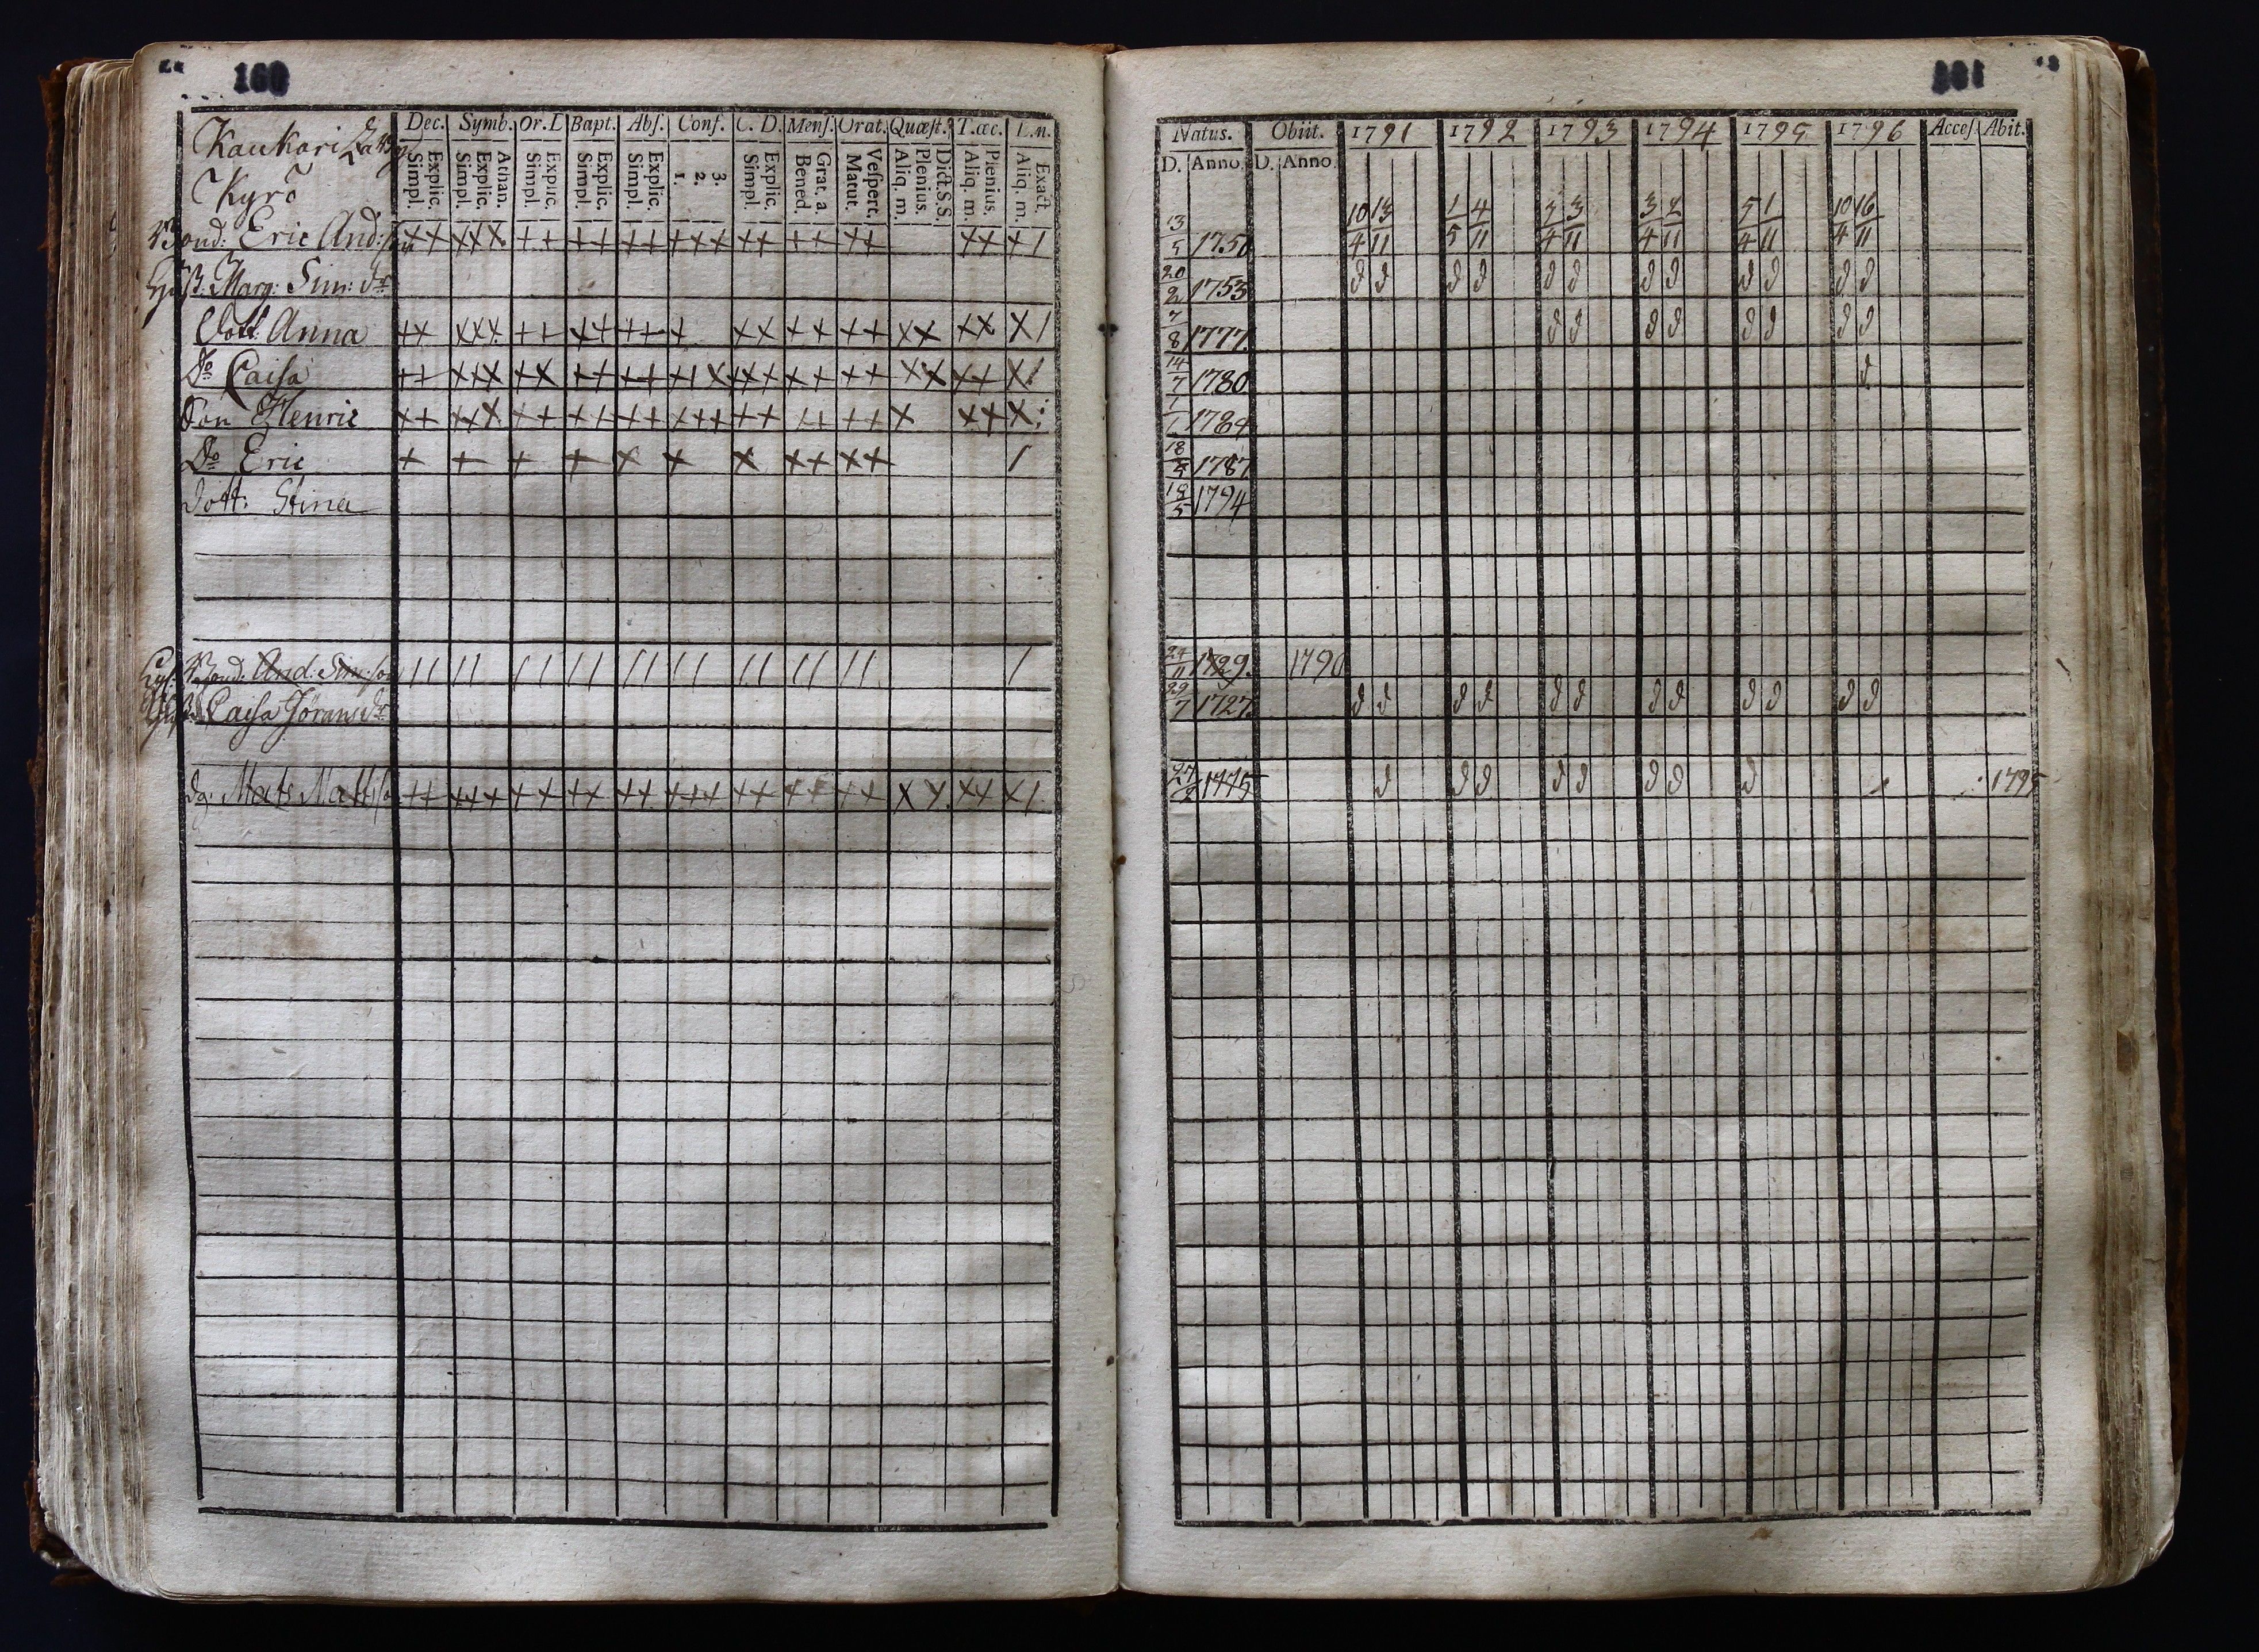 160
Kaukari
Kyrö
Dec. Symb. Or. D Bapt. Abs. Conf. C. D. Mens. Orat. Quæst. T. æc. L. n.
Simpl. Explic. Simpl. Explic. Athan. Simpl. Explic. Simpl. Explic. Simpl. Explic. 1. 2. 3. Simpl. Explic. Bened. Grat. a. Matut. Vespert. Aliq. m. Plenius. Dict. S.S. Aliq. m. Plenius. Aliq. m. Exact.
Bond: Eric And:
Marg: Sim: dr
Dott. Anna
Do Caisa
Son Henric
Do Eric
Dott. Stina
Bond: And: Sim: so
Caisa Jörans dr
dg. Mats Matts so
161
Natus. Obiit. 1791 1792 1793 1794 1795 1796 Acces. Abit.
D. Anno. D. Anno.
10/4 13/11 1/5 4/11 3/11 3/4 2/11 5/4 1/11 10/4 16/11
13/5 1750
20/2 1753
7/8 1777
14/7 1780
1784
18/5 1787
18/5 1794
24/11 1729. 1790
29/7 1727
27/2 1775 1795